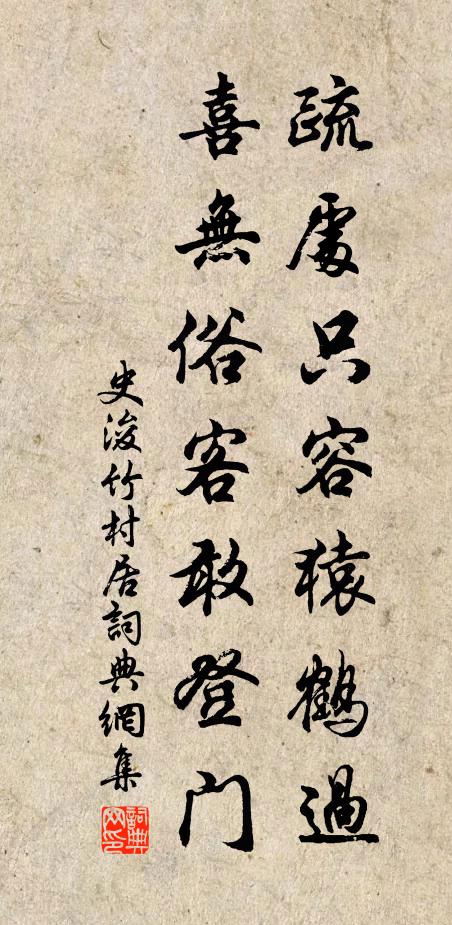 疏處只容猿鶴過
喜無俗客敢登門
史浚竹村居詞典網集
詞典网印